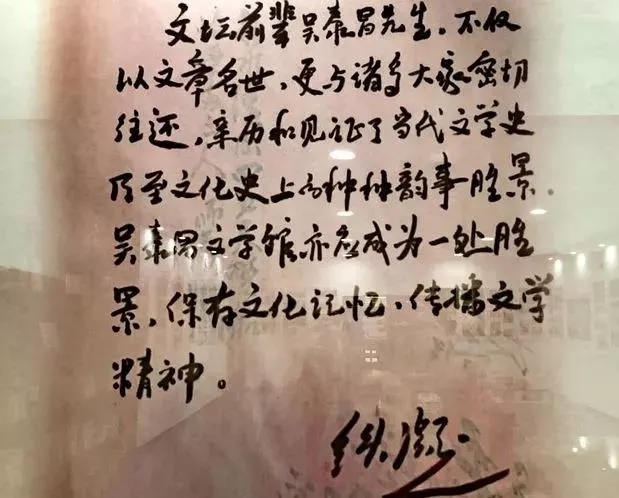 文坛前辈吴泰昌先生，不仅
以文章名世，更与诸多大家密切
往还，亲历和见证了当代文学史
乃至文化史上的种种韵事胜景。
吴泰昌文学馆亦应成为一处胜
景，保存文化记忆，传播文学
精神。
铁凝